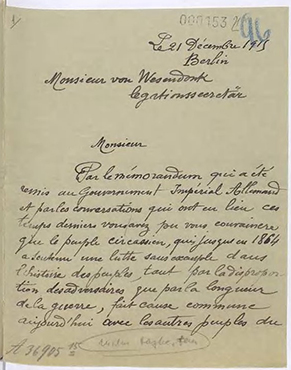 000153
96
Le 21 Décembre 1915
Berlin
Monsieur von Wesendonk
legationssecretär
Monsieur
Par le mémorandum qui a été
remis au Gouvernement Impérial Allemand
et par les conversations qui ont eu lieu ces
temps derniers vous avez pu vous convaincre
que le peuple circassien, qui jusqu'en 1864
a soutenu une lutte sans exemple dans
l'histoire des peuples tant par la dispropor-
tion des adversaires que par la longueur
de la guerre, fait cause commune
aujourd'hui avec les autres peuples du
A 36905 15